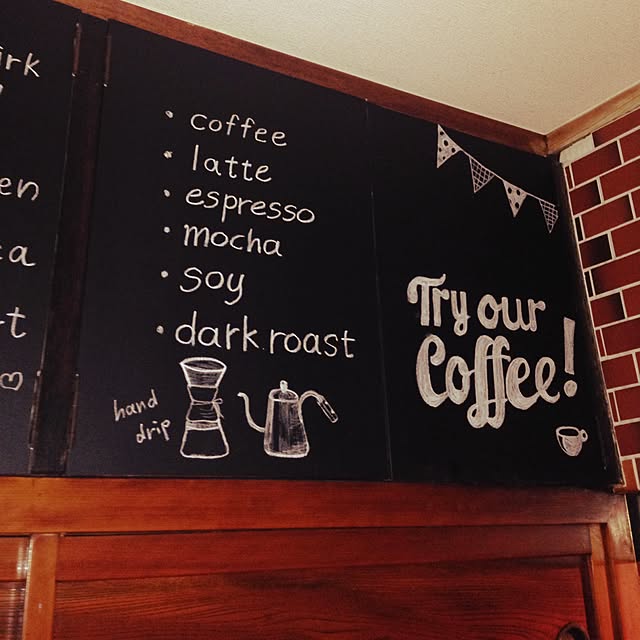 • coffee
• latte
• espresso
• mocha
• soy
• dark roast
hand
drip
Try our
Coffee!